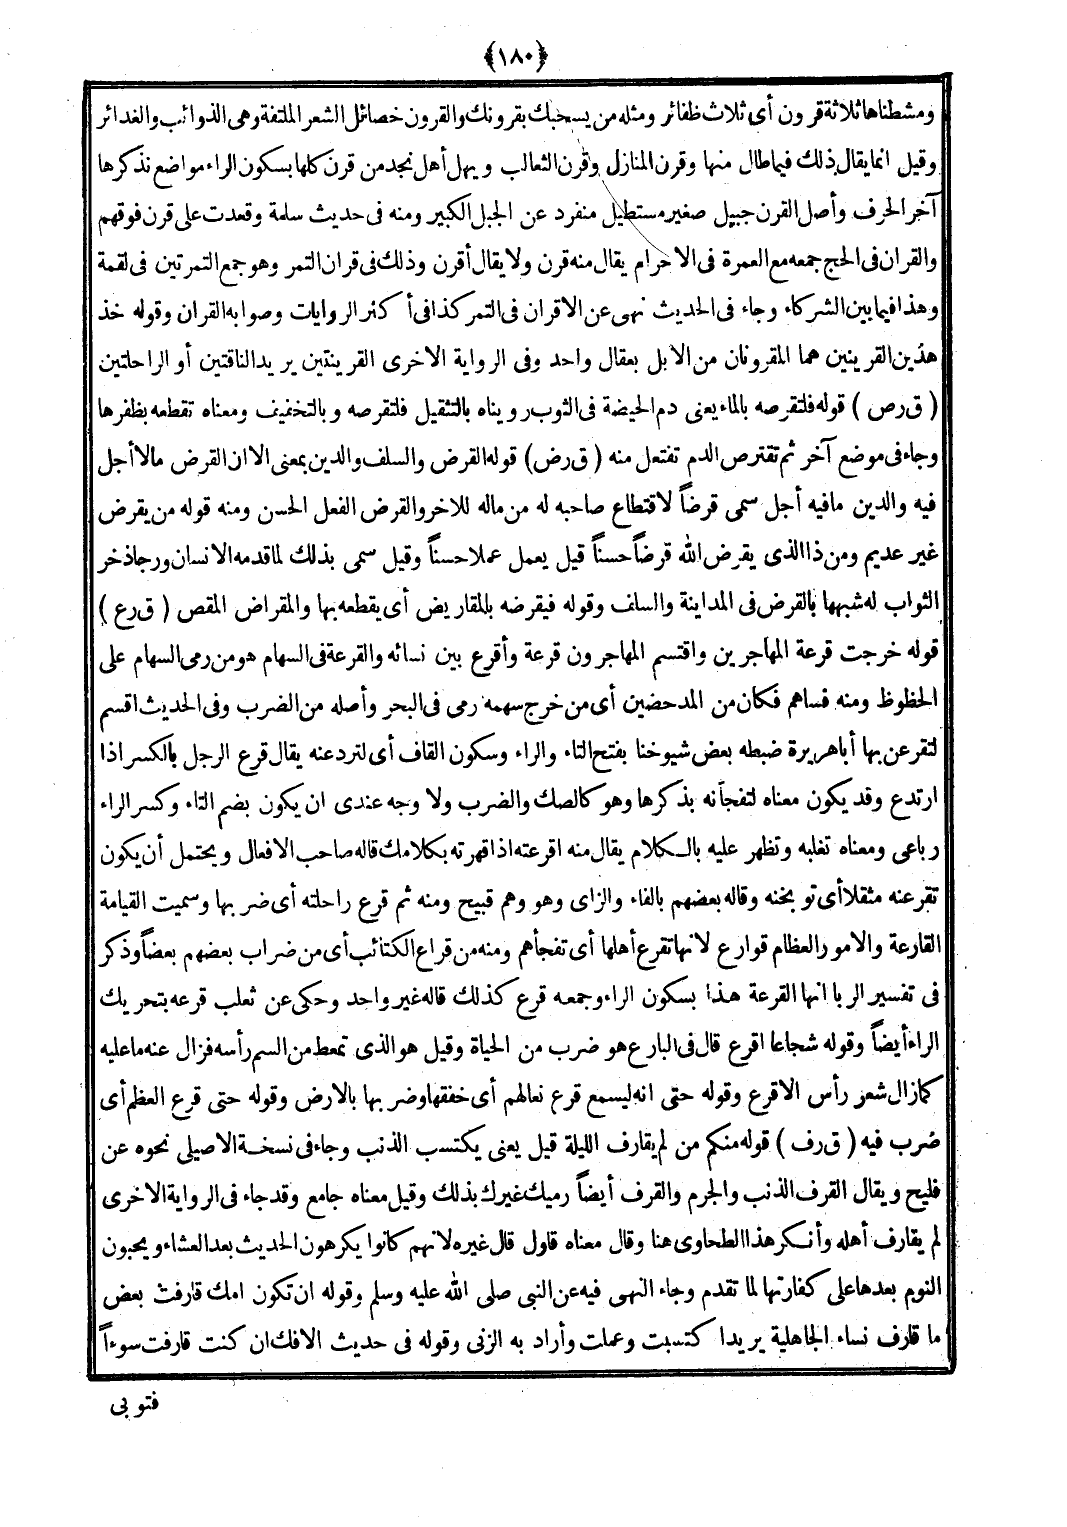 ﴿١٨٠﴾
ومشطناها ثلاثة قرون أى ثلاث ظفائر ومثله من يسحبك بقرونك والقرون خصائل الشعر الملتفة وهى الذوائب والغدائر
وقيل انما يقال ذلك فيما طال منها وقرن المنازل وقرن الثعالب ويهل أهل نجد من قرن كلها بسكون الراء مواضع نذكرها
آخر الحرف وأصل القرن جبيل صغير مستطيل منفرد عن الجبل الكبير ومنه فى حديث سلمة وقعدت على قرن فوقهم
والقران فى الحج جمعه مع العمرة فى الاحرام يقال منه قرن ولا يقال أقرن وذلك فى قران التمر وهو جمع التمرتين فى لقمة
وهذا فيما بين الشركاء وجاء فى الحديث نهى عن الاقران فى التمر كذا فى أكثر الروايات وصوابه القران وقوله خذ
هذين القرينين هما المقرونان من الابل بعقال واحد وفى الرواية الاخرى القرينتين يريد الناقتين أو الراحلتين
(ق ر ص) قوله فلتقرصه بالماء يعنى دم الحيضة فى الثوب رويناه بالتثقيل فلتقرصه وبالتخفيف ومعناه تقطعه بظفرها
وجاء فى موضع آخر ثم تقترص الدم تفتعل منه (ق ر ض) قوله القرض والسلف والدين بمعنى الا ان القرض مالا أجل
فيه والدين مافيه أجل سمى قرضاً لاقتطاع صاحبه له من ماله للاخر والقرض الفعل الحسن ومنه قوله من يقرض
غير عديم ومن ذا الذى يقرض الله قرضاً حسناً قيل يعمل عملا حسناً وقيل سمى بذلك لما قدمه الانسان ورجا ذخر
الثواب له شبهها بالقرض فى المداينة والسلف وقوله فيقرضه بالمقاريض أى يقطعه بها والمقراض المقص (ق ر ع)
قوله خرجت قرعة المهاجرين واقتسم المهاجرون قرعة وأقرع بين نسائه والقرعة فى السهام هو من رمى السهام على
الحظوظ ومنه فساهم فكان من المدحضين أى من خرج سهمه رمى فى البحر وأصله من الضرب وفى الحديث اقسم
لتقرعن بها أباهريرة ضبطه بعض شيوخنا بفتح التاء والراء وسكون القاف أى لتردعنه يقال قرع الرجل بالكسر اذا
ارتدع وقد يكون معناه لتفجأنه بذكرها وهو كالصك والضرب ولا وجه عندى ان يكون بضم التاء وكسر الراء
رباعى ومعناه تغلبه وتظهر عليه بالكلام يقال منه اقرعته اذا قهرته بكلامك قاله صاحب الافعال ويحتمل أن يكون
تقرعنه مثقلا أى توبخنه وقاله بعضهم بالفاء والزاى وهو وهم قبيح ومنه ثم قرع راحلته أى ضربها وسميت القيامة
القارعة والامور العظام قوارع لانها تقرع أهلها أى تفجأهم ومنه من قراع الكتائب أى من ضراب بعضهم بعضاً وذكر
فى تفسير الربا انها القرعة هذا بسكون الراء وجمعه قرع كذلك قاله غير واحد وحكى عن ثعلب قرعه بتحريك
الراء أيضاً وقوله شجاعا اقرع قال فى البارع هو ضرب من الحياة وقيل هو الذى تمعط من السم رأسه فزال عنه ما عليه
كما زال شعر رأس الاقرع وقوله حتى انه ليسمع قرع نعالهم أى خفقها وضربها بالارض وقوله حتى قرع العظم أى
ضرب فيه (ق ر ف) قوله منكم من لم يقارف الليلة قيل يعنى يكتسب الذنب وجاء فى نسخة الاصيلى نحوه عن
فليح ويقال القرف الذنب والجرم والقرف أيضاً رميك غيرك بذلك وقيل معناه جامع وقد جاء فى الرواية الاخرى
لم يقارف أهله وأنكر هذا الطحاوى هنا وقال معناه قاول قال غيره لانهم كانوا يكرهون الحديث بعد العشاء ويحبون
النوم بعدها على كفارتها لما تقدم وجاء النهى فيه عن النبى صلى الله عليه وسلم وقوله ان تكون امك قارفت بعض
ما قارف نساء الجاهلية يريد اكتسبت وعملت وأراد به الزنى وقوله فى حديث الافك ان كنت قارفت سوءاً
فتوبى